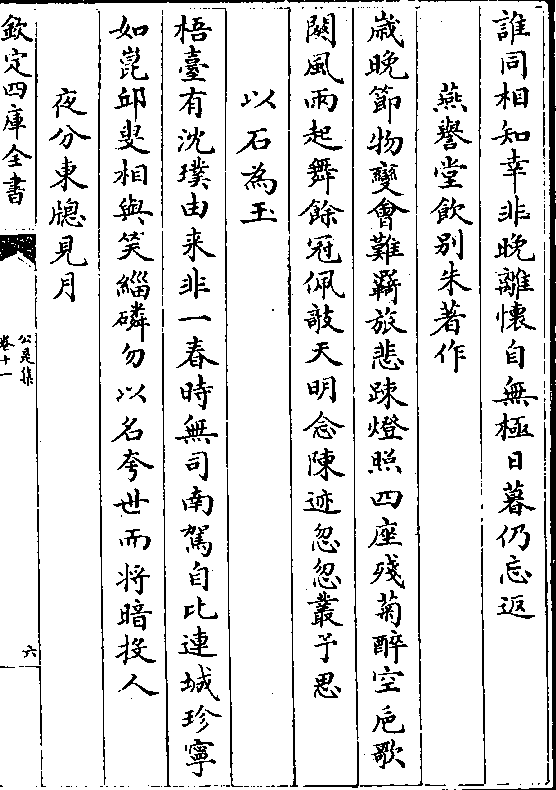 誰同相知幸非晚離懐自無極日暮仍忘返
燕譽堂飲別朱著作
嵗晚節物變會難羇旅悲踈燈照四座殘菊醉空巵歌
闋風雨起舞餘冠佩敧天明念陳迹忽忽叢予思
以石為玉
梧臺有沈璞由来非一春時無司南駕自比連城珍寧
如崑邱叟相與笑緇磷勿以名夸世而将暗投人
夜分東牕見月
欽定四庫全書
公是集
卷十一
六